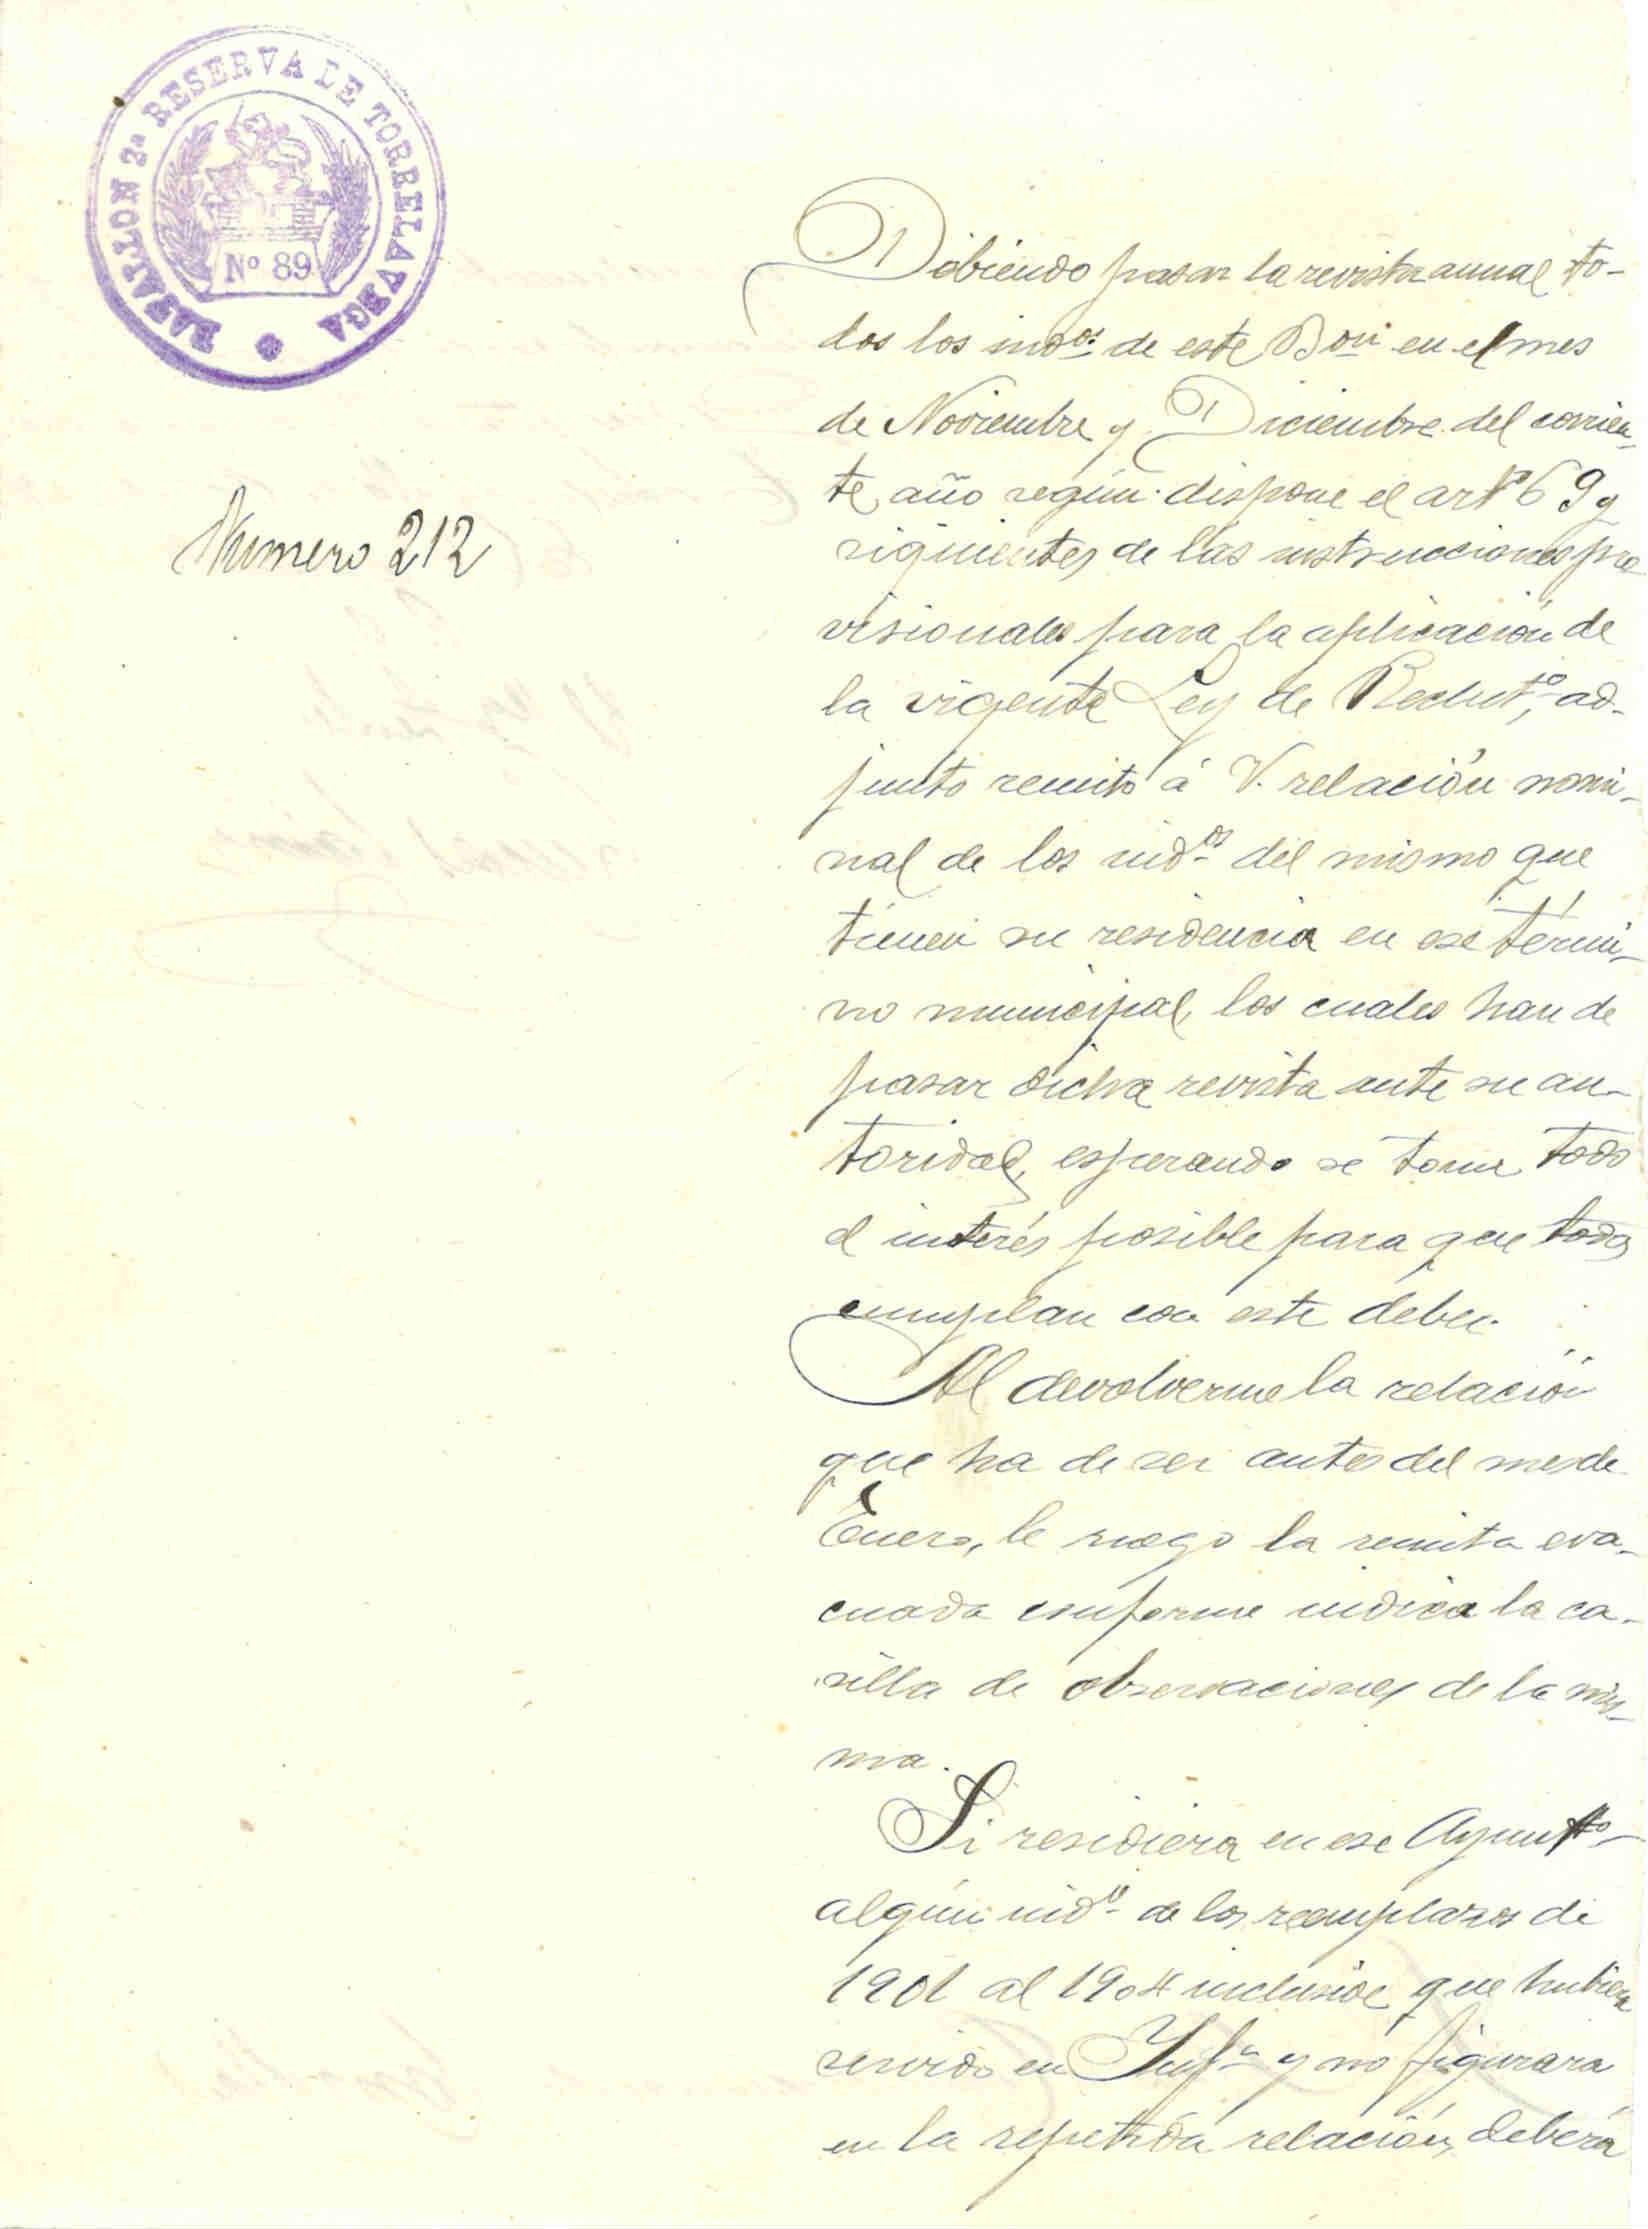 BATALLON 2ª RESERVA DE TORRELAVEGA
Nº 89
Numero 212
Debiendo pasar la revista anual to-
dos los indos de este Bon en el mes
de Noviembre y Diciembre del corrien-
te año según dispone el artº 69 y
siguientes de las instrucciones pro
visionales para la aplicación de
la vigente Ley de Reclutto, ad-
junto remito á V. relación nomi-
nal de los indos del mismo que
tienen su residencia en ese térmi-
no municipal, los cuales han de
pasar dicha revista ante su au-
toridad, esperando se tome todo
el interés posible para que todos
cumplan con este deber.
Al devolverme la relación
que ha de ser antes del mes de
Enero, le ruego la remita eva-
cuada conforme indica la ca-
silla de observaciones de la mis-
ma.
Si residiera en ese Ayuntto
algún indo de los reemplazos de
1901 al 1904 inclusive que hubiera
servido en Infa y no figurara
en la repetida relación, deberá